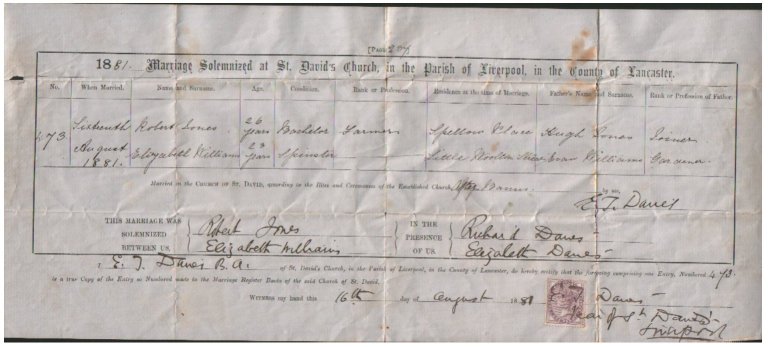 [PAGE
1881. Marriage Solemnized at St. David's Church, in the Parish of Liverpool, in the County of Lancaster.
No. When Married. Name and Surname. Age. Condition. Rank or Profession. Residence at the time of Marriage. Father's Name and Surname. Rank or Profession of Father.
473 Sixteenth Robert Jones 26 years Bachelor Farmer Spellow Place Hugh Jones Joiner
August 1881. Elizabeth Williams 23 years Spinster — Little Woolton Evan Williams Gardener
Married in the CHURCH OF ST. DAVID, according to the Rites and Ceremonies of the Established Church, Banns. by me,
E. J. Davies
THIS MARRIAGE WAS SOLEMNIZED BETWEEN US, Robert Jones IN THE PRESENCE OF US. Richard Davies
Elizabeth Williams Elizabeth Davies
I E. J. Davies B.A. of St. David's Church, in the Parish of Liverpool, in the County of Lancaster, do hereby certify that the foregoing comprising one Entry, Numbered 473.
is a true Copy of the Entry so Numbered made in the Marriage Register Book of the said Church of St. David.
WITNESS my hand this 16th day of August 1881 Davies
of St David's
Liverpool